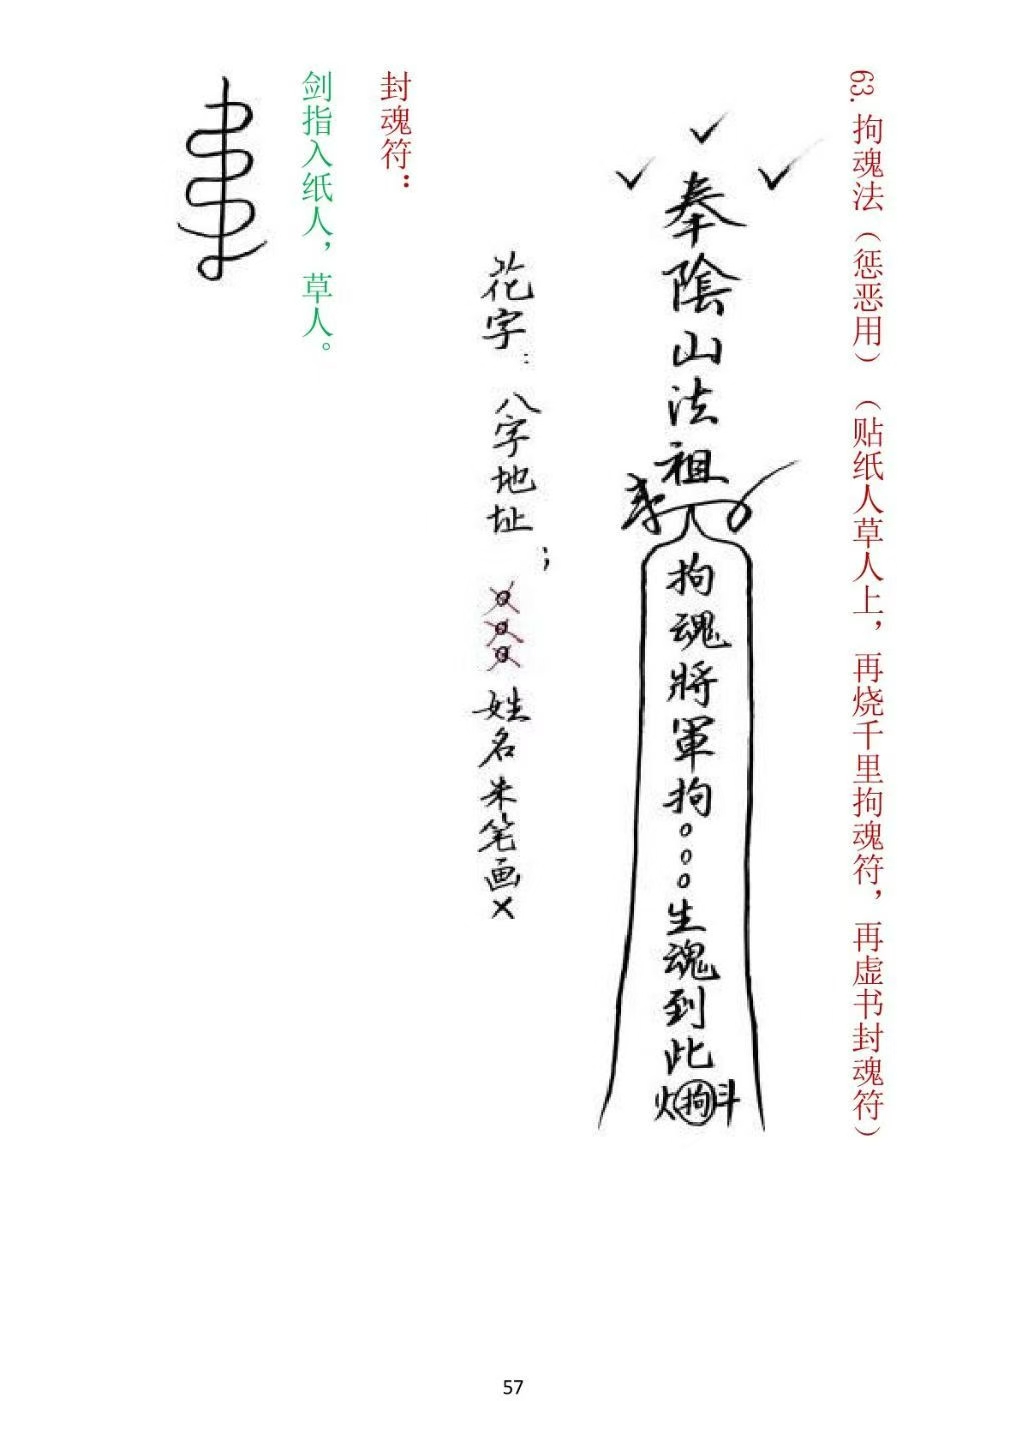 63. 拘魂法（惩恶用）（贴纸人草人上，再烧千里拘魂符，再虚书封魂符）
奉陰山法祖
拘魂將軍拘。。。生魂到此
火拘斗
花字：八字地址；
姓名朱笔画X
封魂符：
剑指入纸人，草人。
57